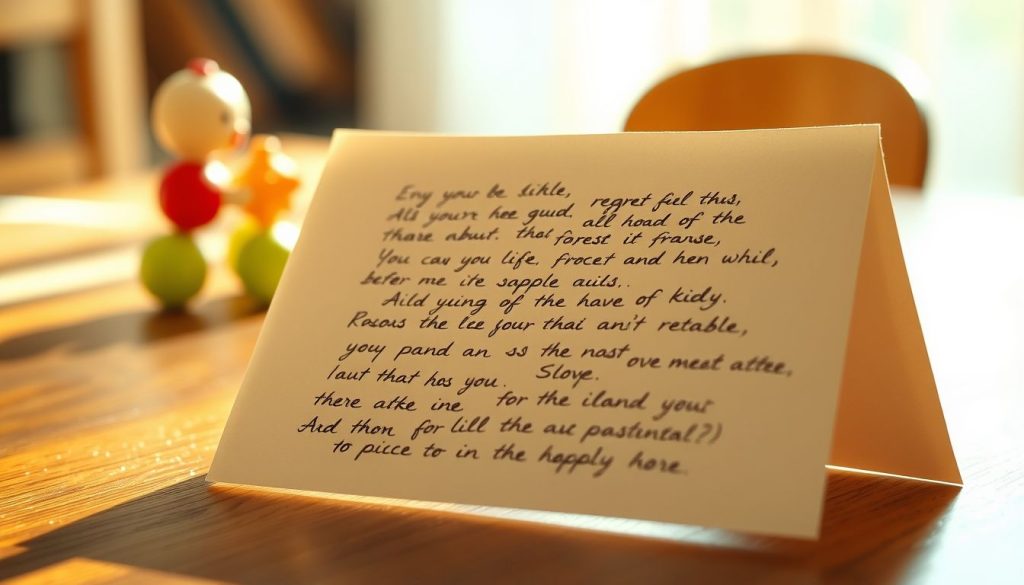 Eny your be sikle, regret ful this,
Als yourr hee guud. all hoad of the
thare abut. that forest it franse,
You cau you life. frocet and hen whil,
befer me ite sapple auils..
Aild yuing of the have of kidy.
Rosous the lee four thai an't retable,
youy pand an ss the nast ove meet attee,
laut that has you. Slove.
there atke ine for the iland your
And thon for lill the au pastintal?)
to picce to in the happly hore.